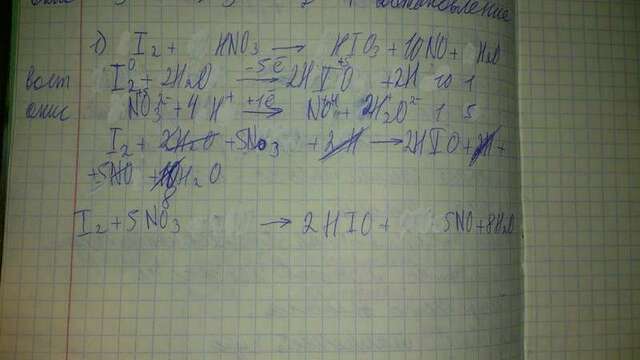 становление
I₂ + HNO₃ → HIO₃ + 10NO + H₂O
восст I₂⁰ + 2H₂O -5ē→ 2HI⁺⁵O + 2H 10 1
окис NO₃ + 4H⁺ +1ē→ NO + 2H₂O 1 5
I₂ + 2H₂O + 5NO₃ + 2H → 2HIO + 2H +
+5NO + H₂O
8
I₂ + 5NO₃ → 2HIO + 5NO + 8H₂O